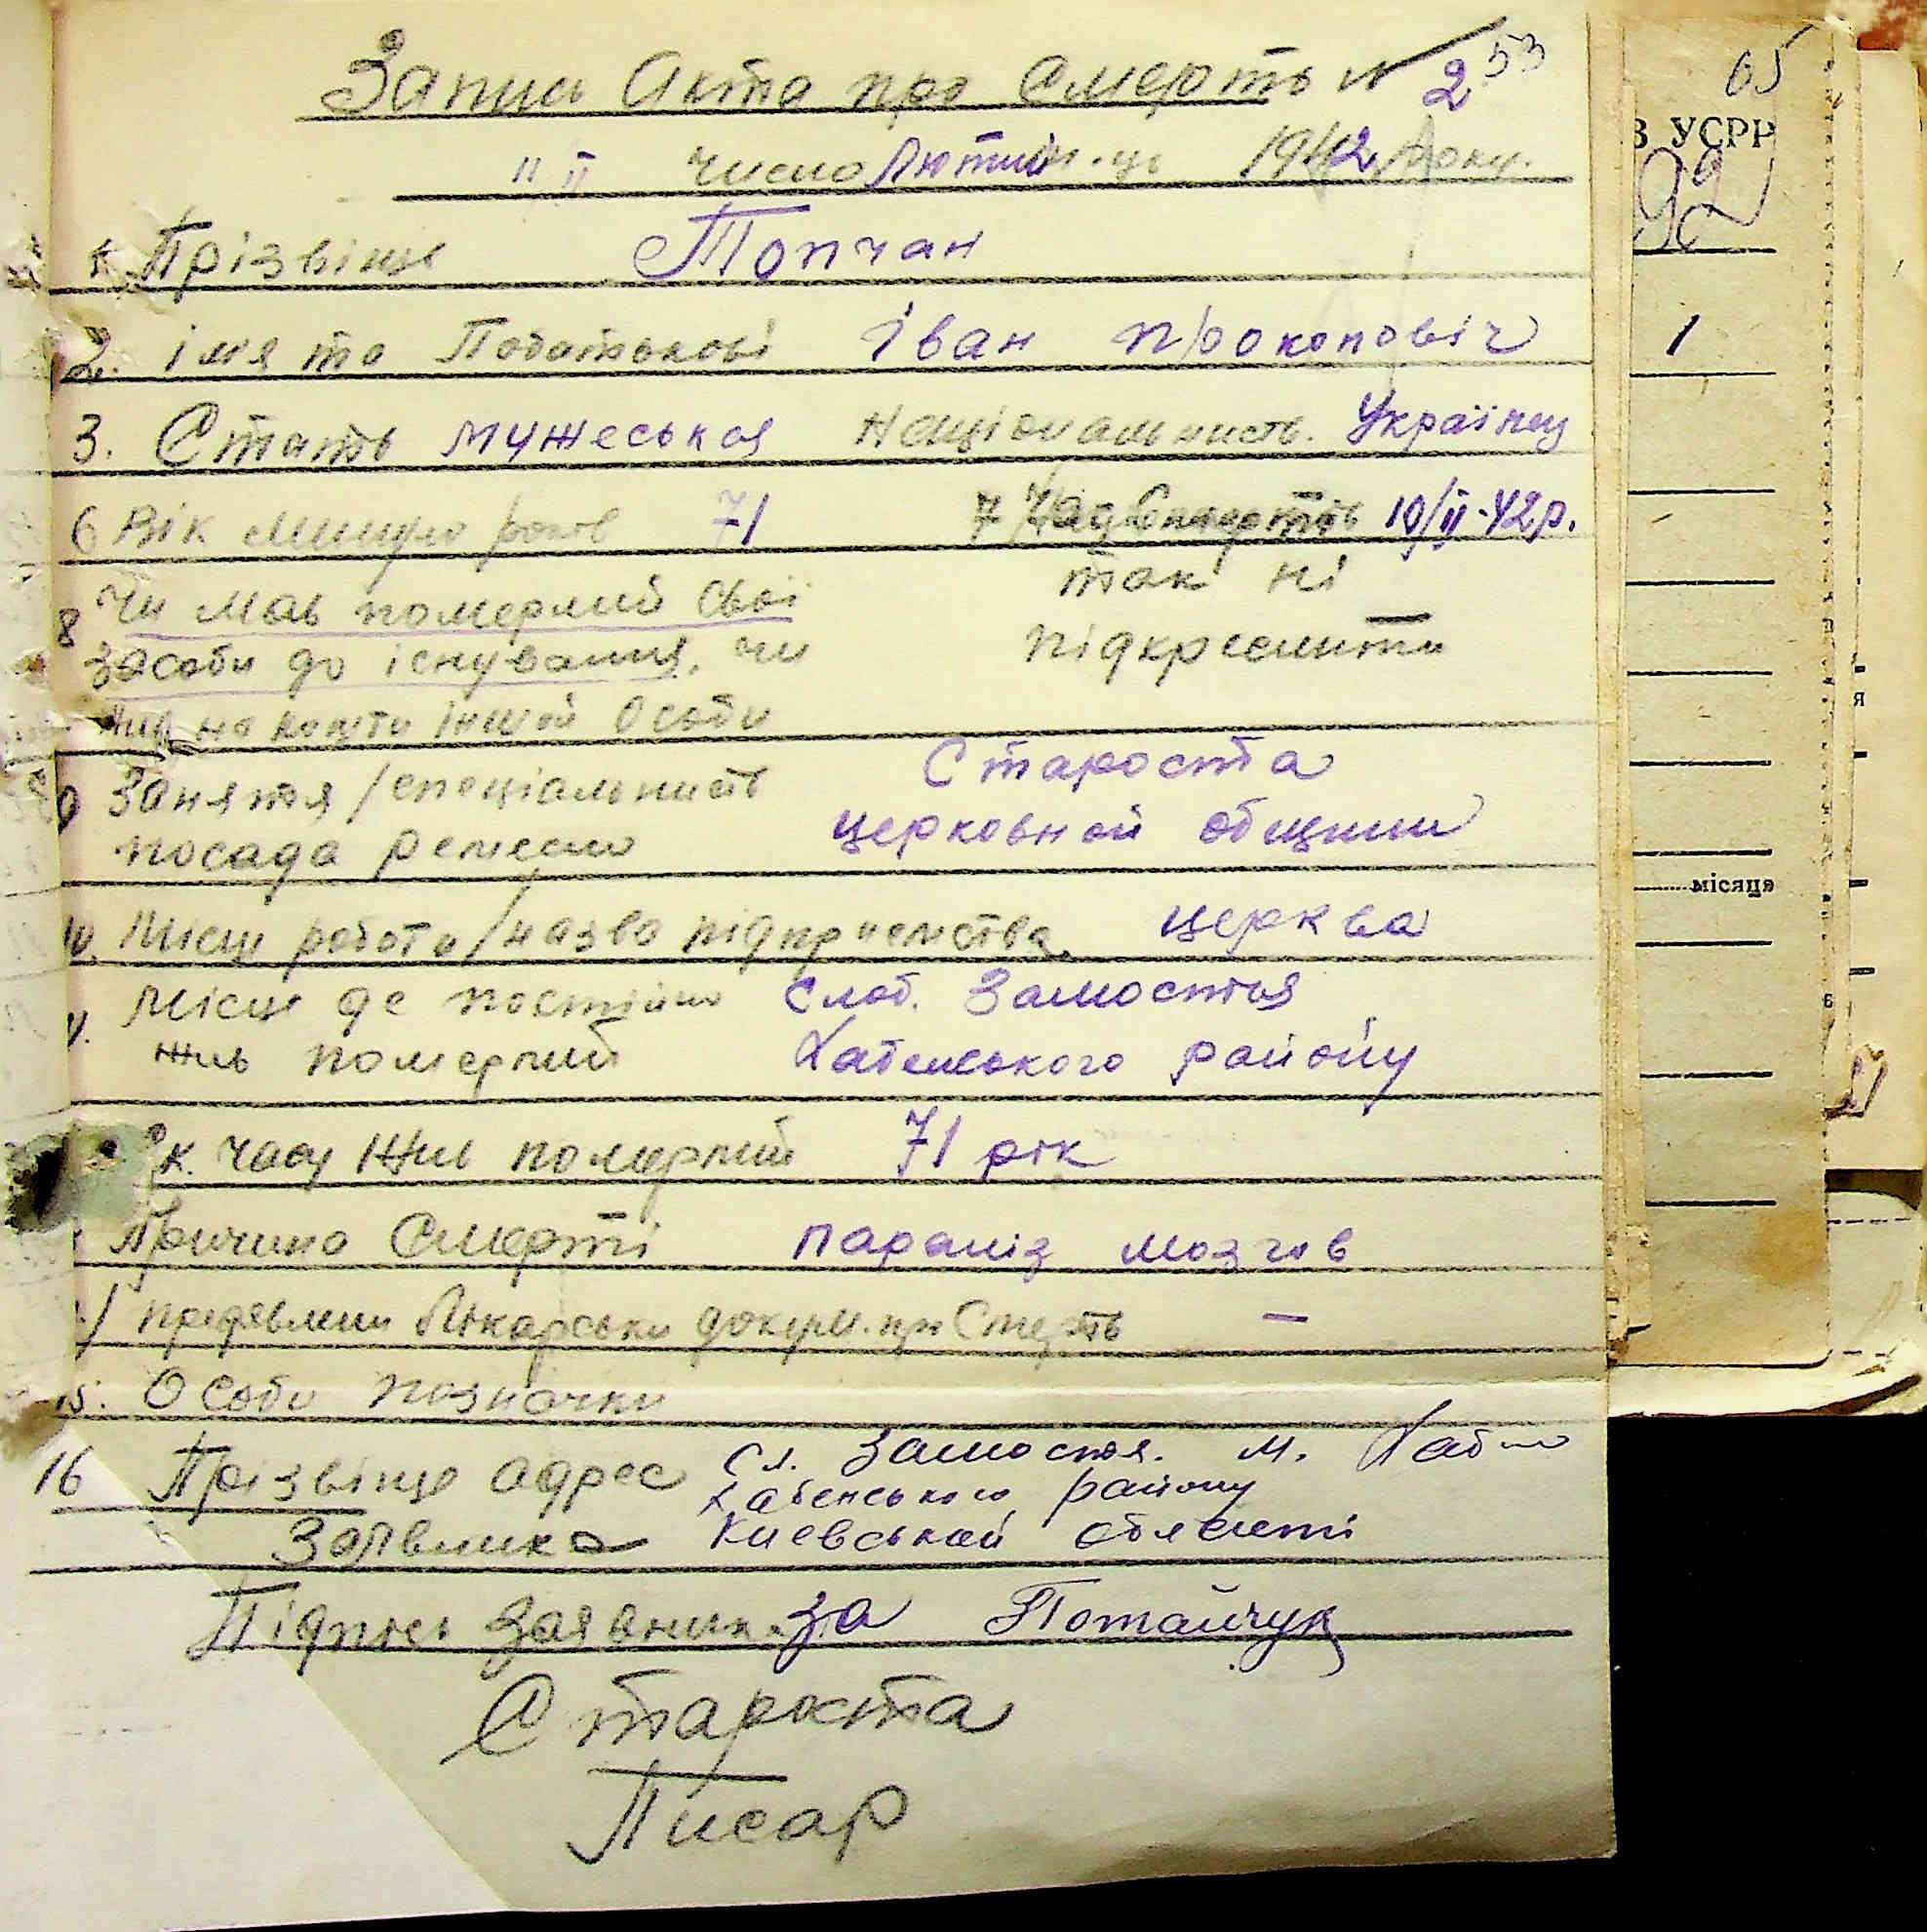 Запис Акта про Смерть № 2
53
"II числа Лютий м-ць 1942 Року.
1. Прізвіще Топчан
2. імя та Побатькові Іван Прокоповіч
3. Стать мужеськая Національність. Українец
6 Вік минуло років 71 7 Час Смерті 10/II-42р.
8 Чи мав померлий свої так ні
засоби до існування, чи підкреслити
жив на кошти іншой Особи
9 Заняття/спеціальність Староста
посада ремесло церковной общини
10. Місце роботи/назва підприємства, церква
11. Місце де постійно Слоб. Замостья
жив померлий Хабенського району
ск. часу жив померлий 71 рік
Причина Смерті параліз мозгів
предявлени Лікарськи докум. про Смерть —
15. Особи позначки
16 Прізвіще адрес Сл. Замостя. м. Хабно
Хабенського району
Заявника Киевськой области
Підпись Заявника за Потайчук
Староста
Писар
65
З УСРР
92
1
місяця